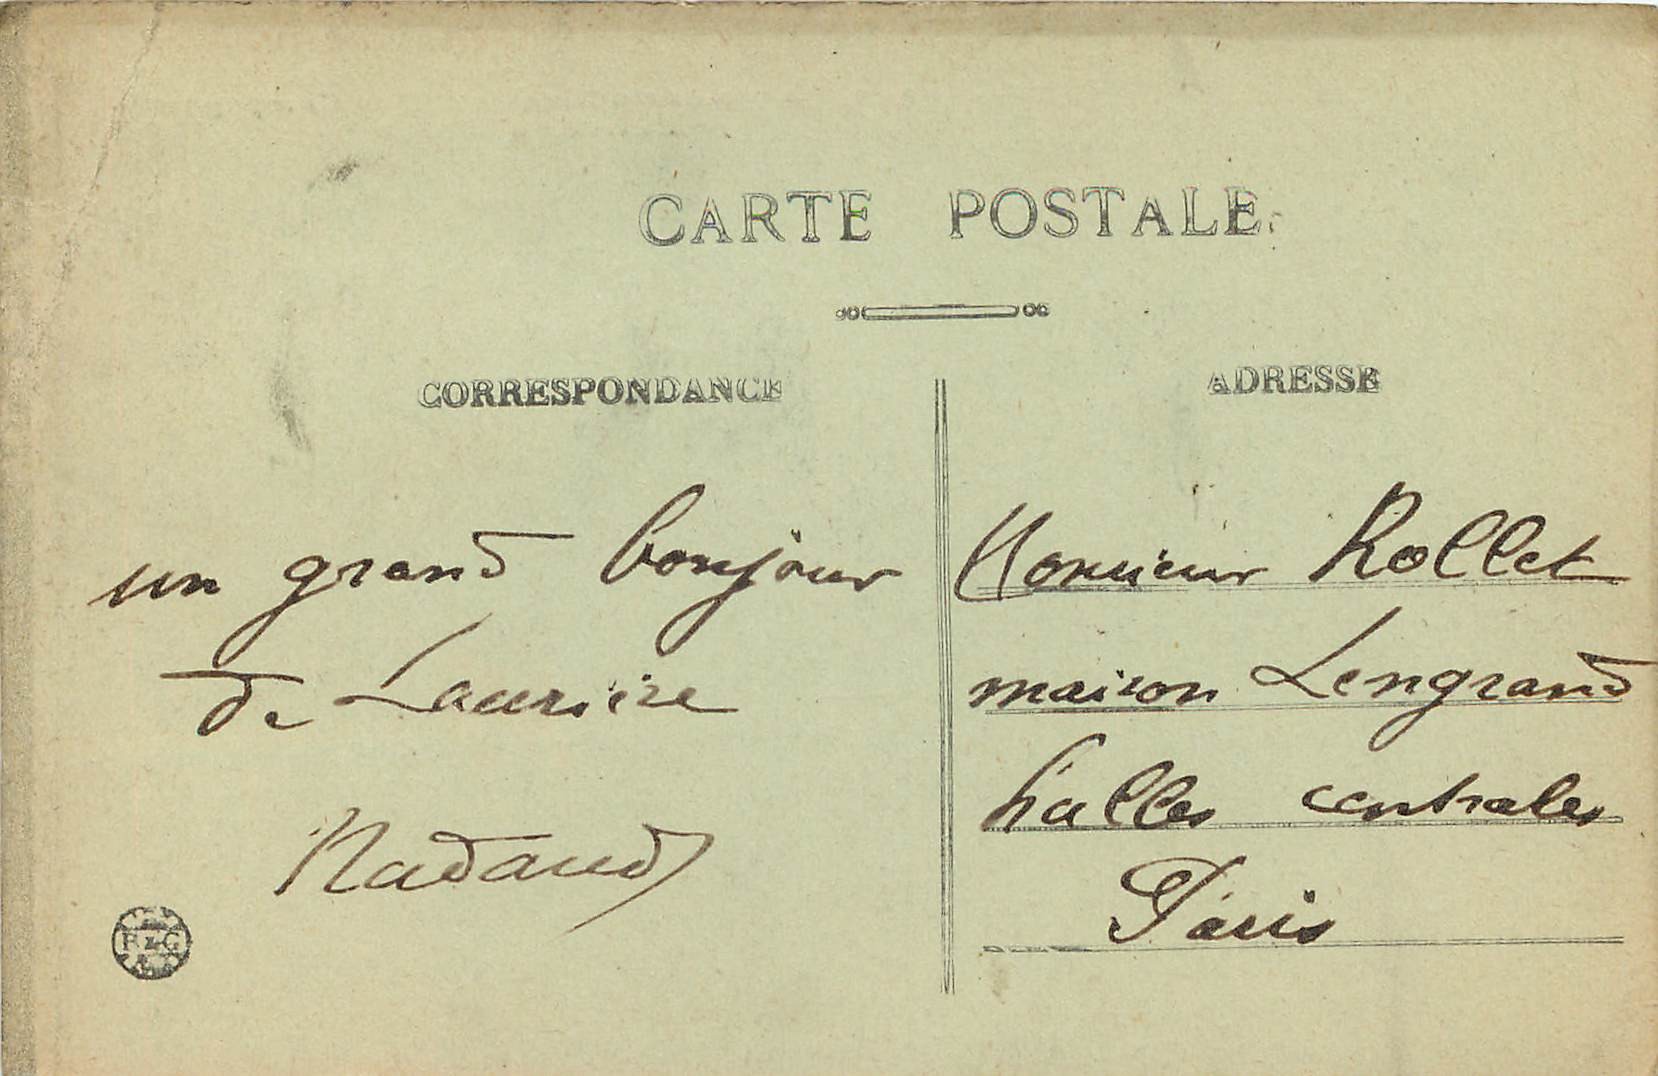 CARTE POSTALE
CORRESPONDANCE
ADRESSE
un grand bonjour
de Laurière
Nadaud
Monsieur Rollet
maison Lengrand
halles centrales
Paris